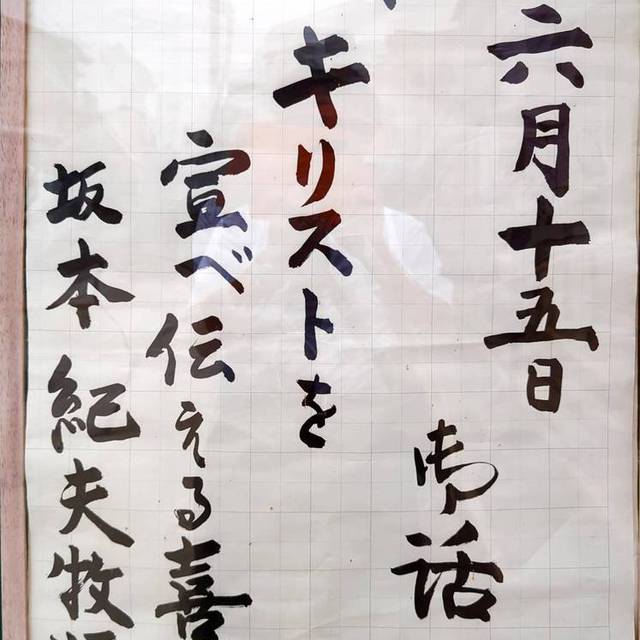 六月十五日
御話
キリストを
宣べ伝える喜
坂本紀夫牧師